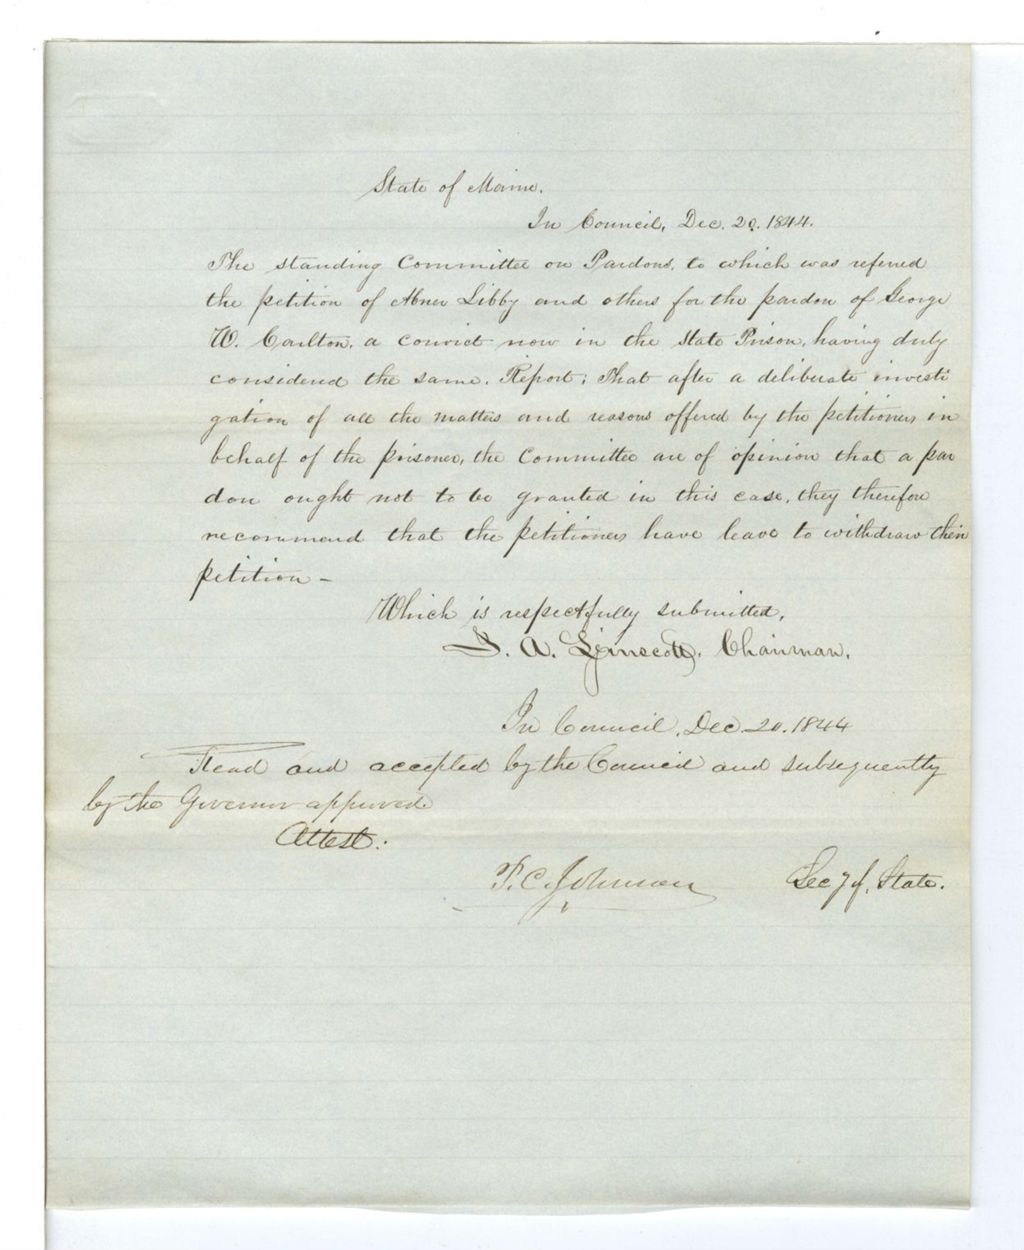 State of Maine.
In Council, Dec. 20. 1844.
The standing Committee on Pardons, to which was referred
the petition of Abner Libby and others for the pardon of George
W. Carlton, a convict now in the State Prison, having duly
considered the same. Report; That after a deliberate investi
gation of all the matters and reasons offered by the petitioners, in
behalf of the prisoner, the Committee are of opinion that a par
don ought not to be granted in this case, they therefore
recommend that the petitioners have leave to withdraw their
petition –
Which is respectfully submitted,
J. A. Linscott, Chairman.
In Council, Dec. 20. 1844
Read and accepted by the Council and subsequently
by the Governor approved
Attest:
P. C. Johnson Secy of State.